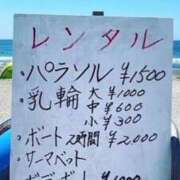 レンタル
・パラソル ¥1500
・乳輪 大 ¥1000
中 ¥600
小 ¥300
・ボート 2時間 ¥2,000
・サーマベット